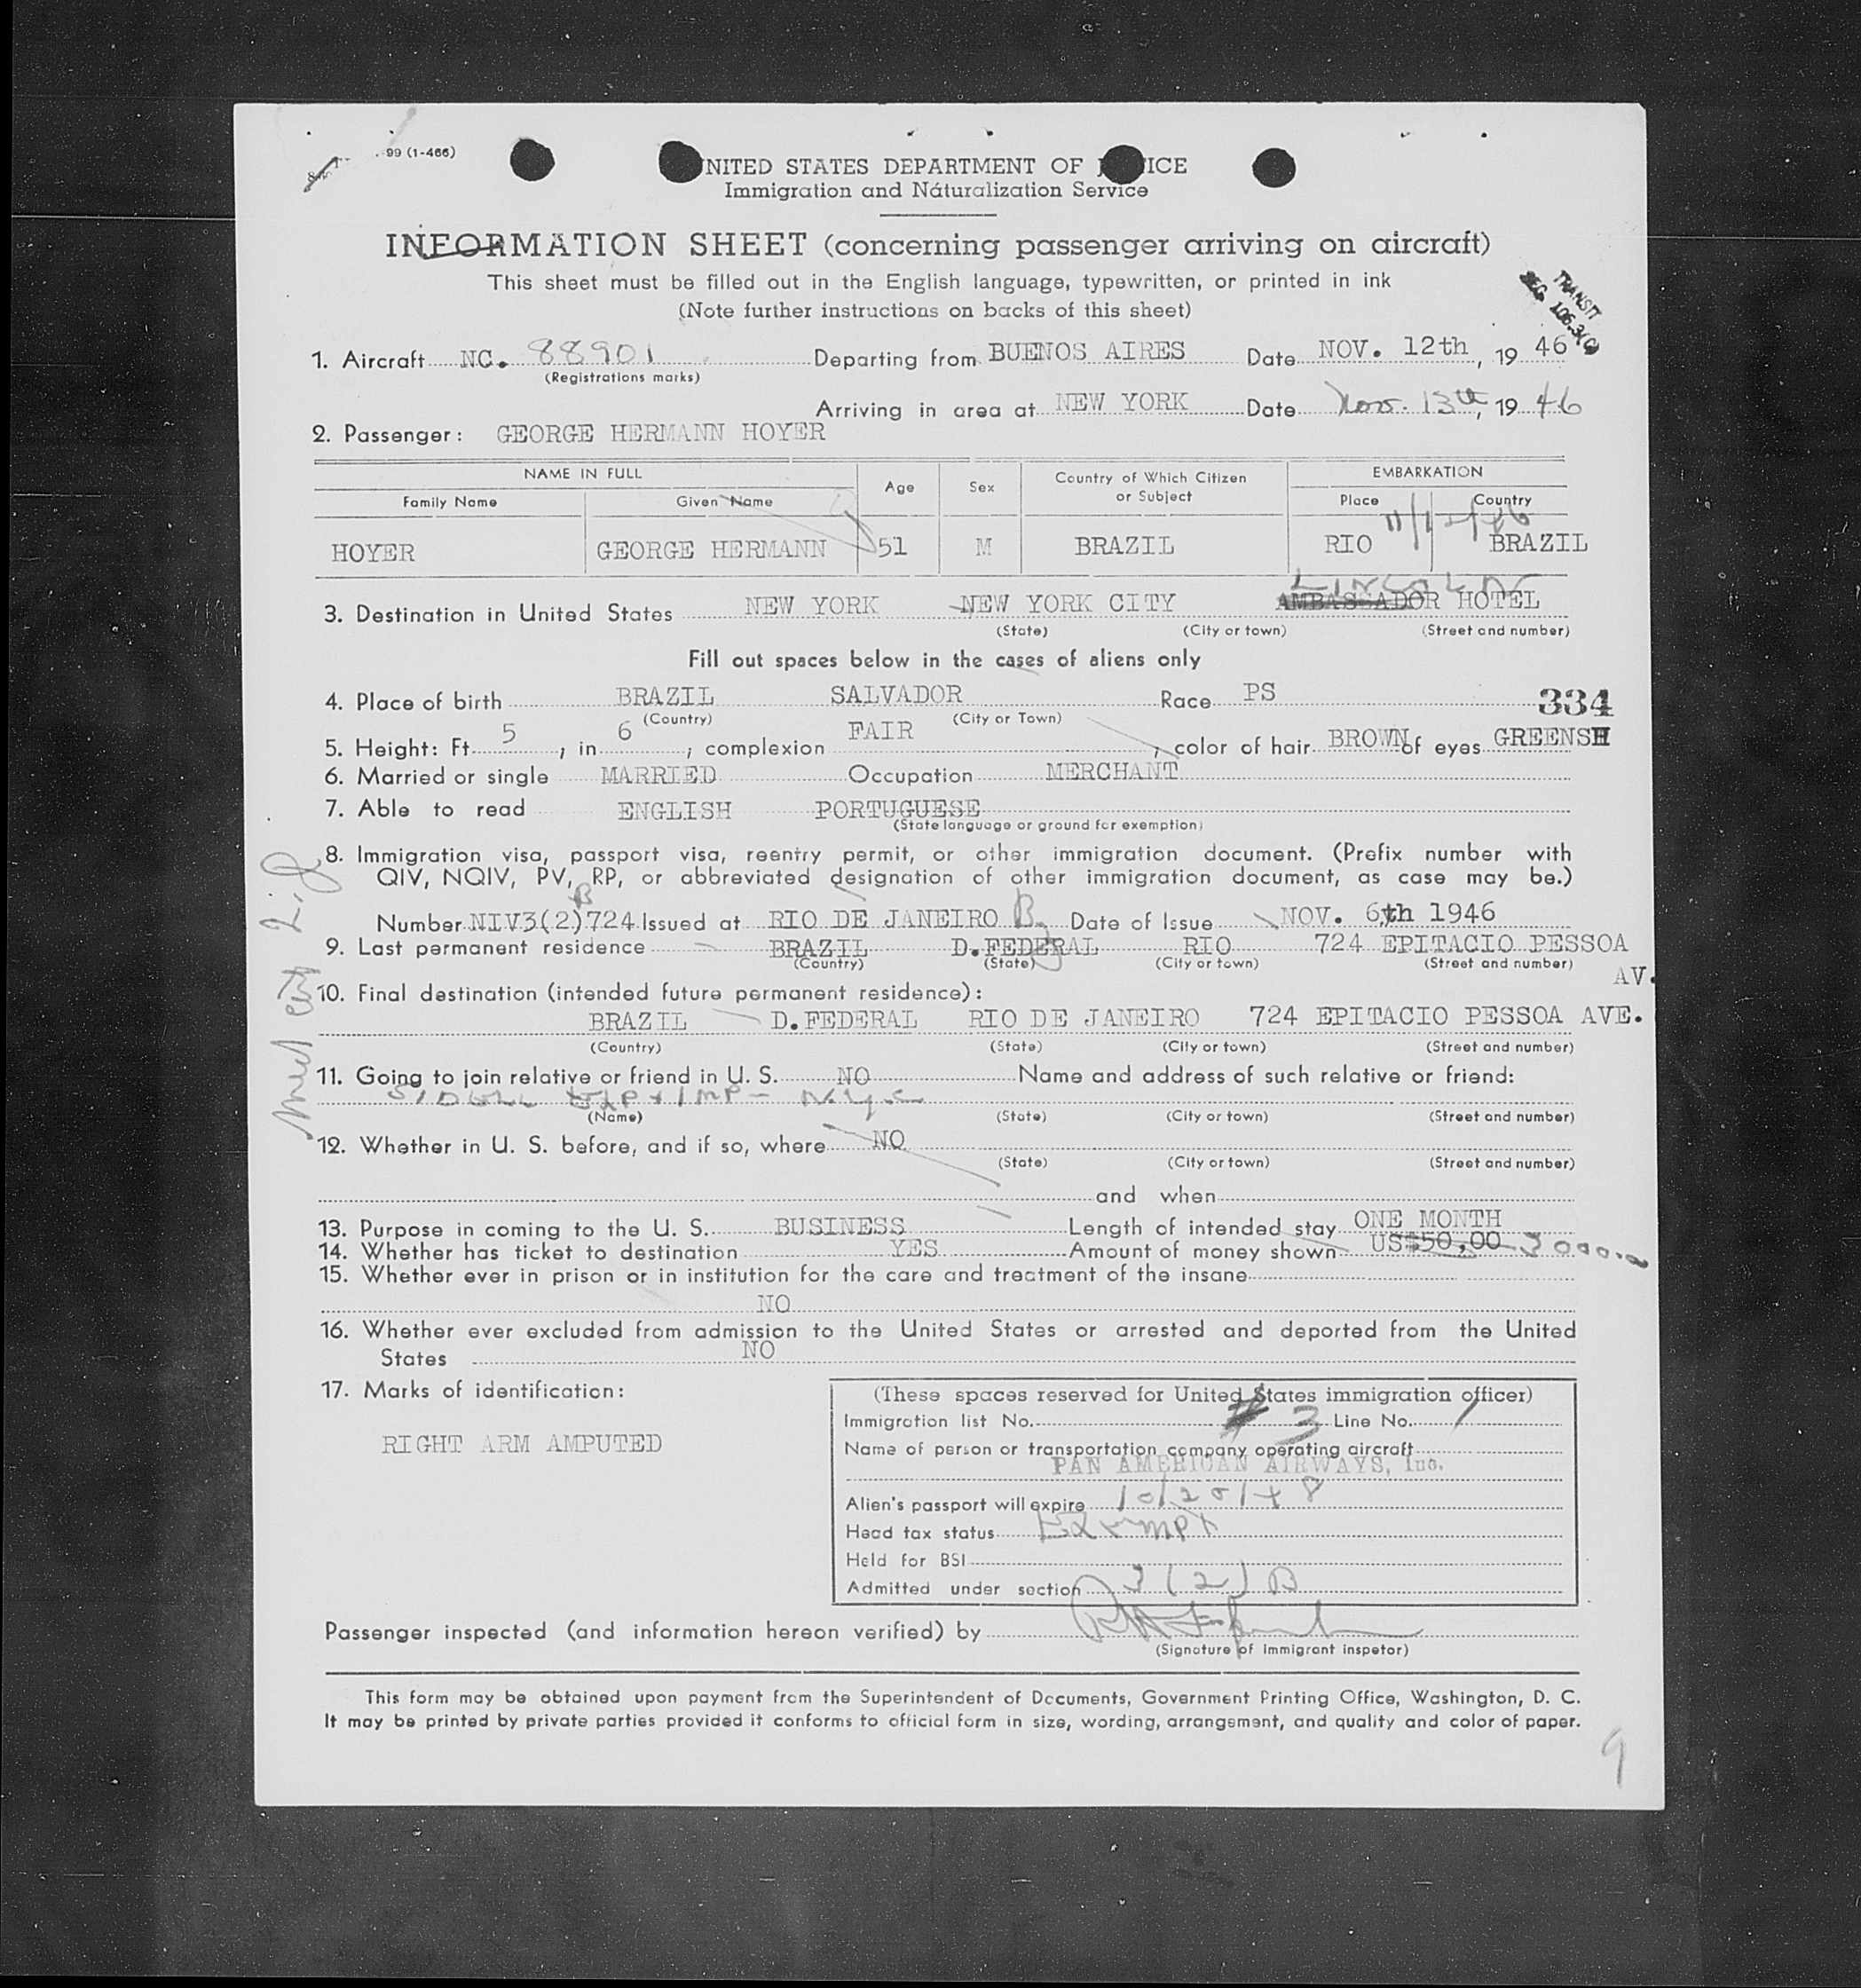 99 (1-466)
UNITED STATES DEPARTMENT OF JUSTICE
Immigration and Naturalization Service
INFORMATION SHEET (concerning passenger arriving on aircraft)
This sheet must be filled out in the English language, typewritten, or printed in ink
(Note further instructions on backs of this sheet)
TRANSIT
SEC. 106.3(c)
1. Aircraft NC. 88901 Departing from BUENOS AIRES Date NOV. 12th, 19 46
(Registrations marks)
Arriving in area at NEW YORK Date Nov. 13th, 19 46
2. Passenger: GEORGE HERMANN HOYER
NAME IN FULL Age Sex Country of Which Citizen or Subject EMBARKATION
Family Name Given Name Place Country
11/12/46
HOYER GEORGE HERMANN 51 M BRAZIL RIO BRAZIL
LINCOLN
3. Destination in United States NEW YORK NEW YORK CITY AMBASSADOR HOTEL
(State) (City or town) (Street and number)
Fill out spaces below in the cases of aliens only
4. Place of birth BRAZIL SALVADOR Race PS 334
(Country) (City or Town)
5. Height: Ft. 5, in 6, complexion FAIR, color of hair BROWN of eyes GREENSH
6. Married or single MARRIED Occupation MERCHANT
7. Able to read ENGLISH PORTUGUESE
(State language or ground for exemption)
8. Immigration visa, passport visa, reentry permit, or other immigration document. (Prefix number with
QIV, NQIV, PV, RP, or abbreviated designation of other immigration document, as case may be.)
B
Number NIV3(2)724 Issued at RIO DE JANEIRO B Date of Issue NOV. 6th 1946
9. Last permanent residence BRAZIL D.FEDERAL RIO 724 EPITACIO PESSOA
(Country) (State) (City or town) (Street and number)
AV.
10. Final destination (intended future permanent residence):
BRAZIL D.FEDERAL RIO DE JANEIRO 724 EPITACIO PESSOA AVE.
(Country) (State) (City or town) (Street and number)
11. Going to join relative or friend in U. S. NO Name and address of such relative or friend:
EXP & IMP - N.Y.C
(Name) (State) (City or town) (Street and number)
12. Whether in U. S. before, and if so, where NO
(State) (City or town) (Street and number)
and when
13. Purpose in coming to the U. S. BUSINESS Length of intended stay ONE MONTH
14. Whether has ticket to destination YES Amount of money shown US$50,00 3000.00
15. Whether ever in prison or in institution for the care and treatment of the insane
NO
16. Whether ever excluded from admission to the United States or arrested and deported from the United
States NO
17. Marks of identification:
RIGHT ARM AMPUTED
(These spaces reserved for United States immigration officer)
Immigration list No. # 3 Line No. 1
Name of person or transportation company operating aircraft
PAN AMERICAN AIRWAYS, Inc.
Alien's passport will expire 10/20/48
Head tax status Exempt
Held for BSI
Admitted under section 3(2)B
Passenger inspected (and information hereon verified) by
(Signature of Immigrant inspetor)
This form may be obtained upon payment from the Superintendent of Documents, Government Printing Office, Washington, D. C.
It may be printed by private parties provided it conforms to official form in size, wording, arrangement, and quality and color of paper.
9